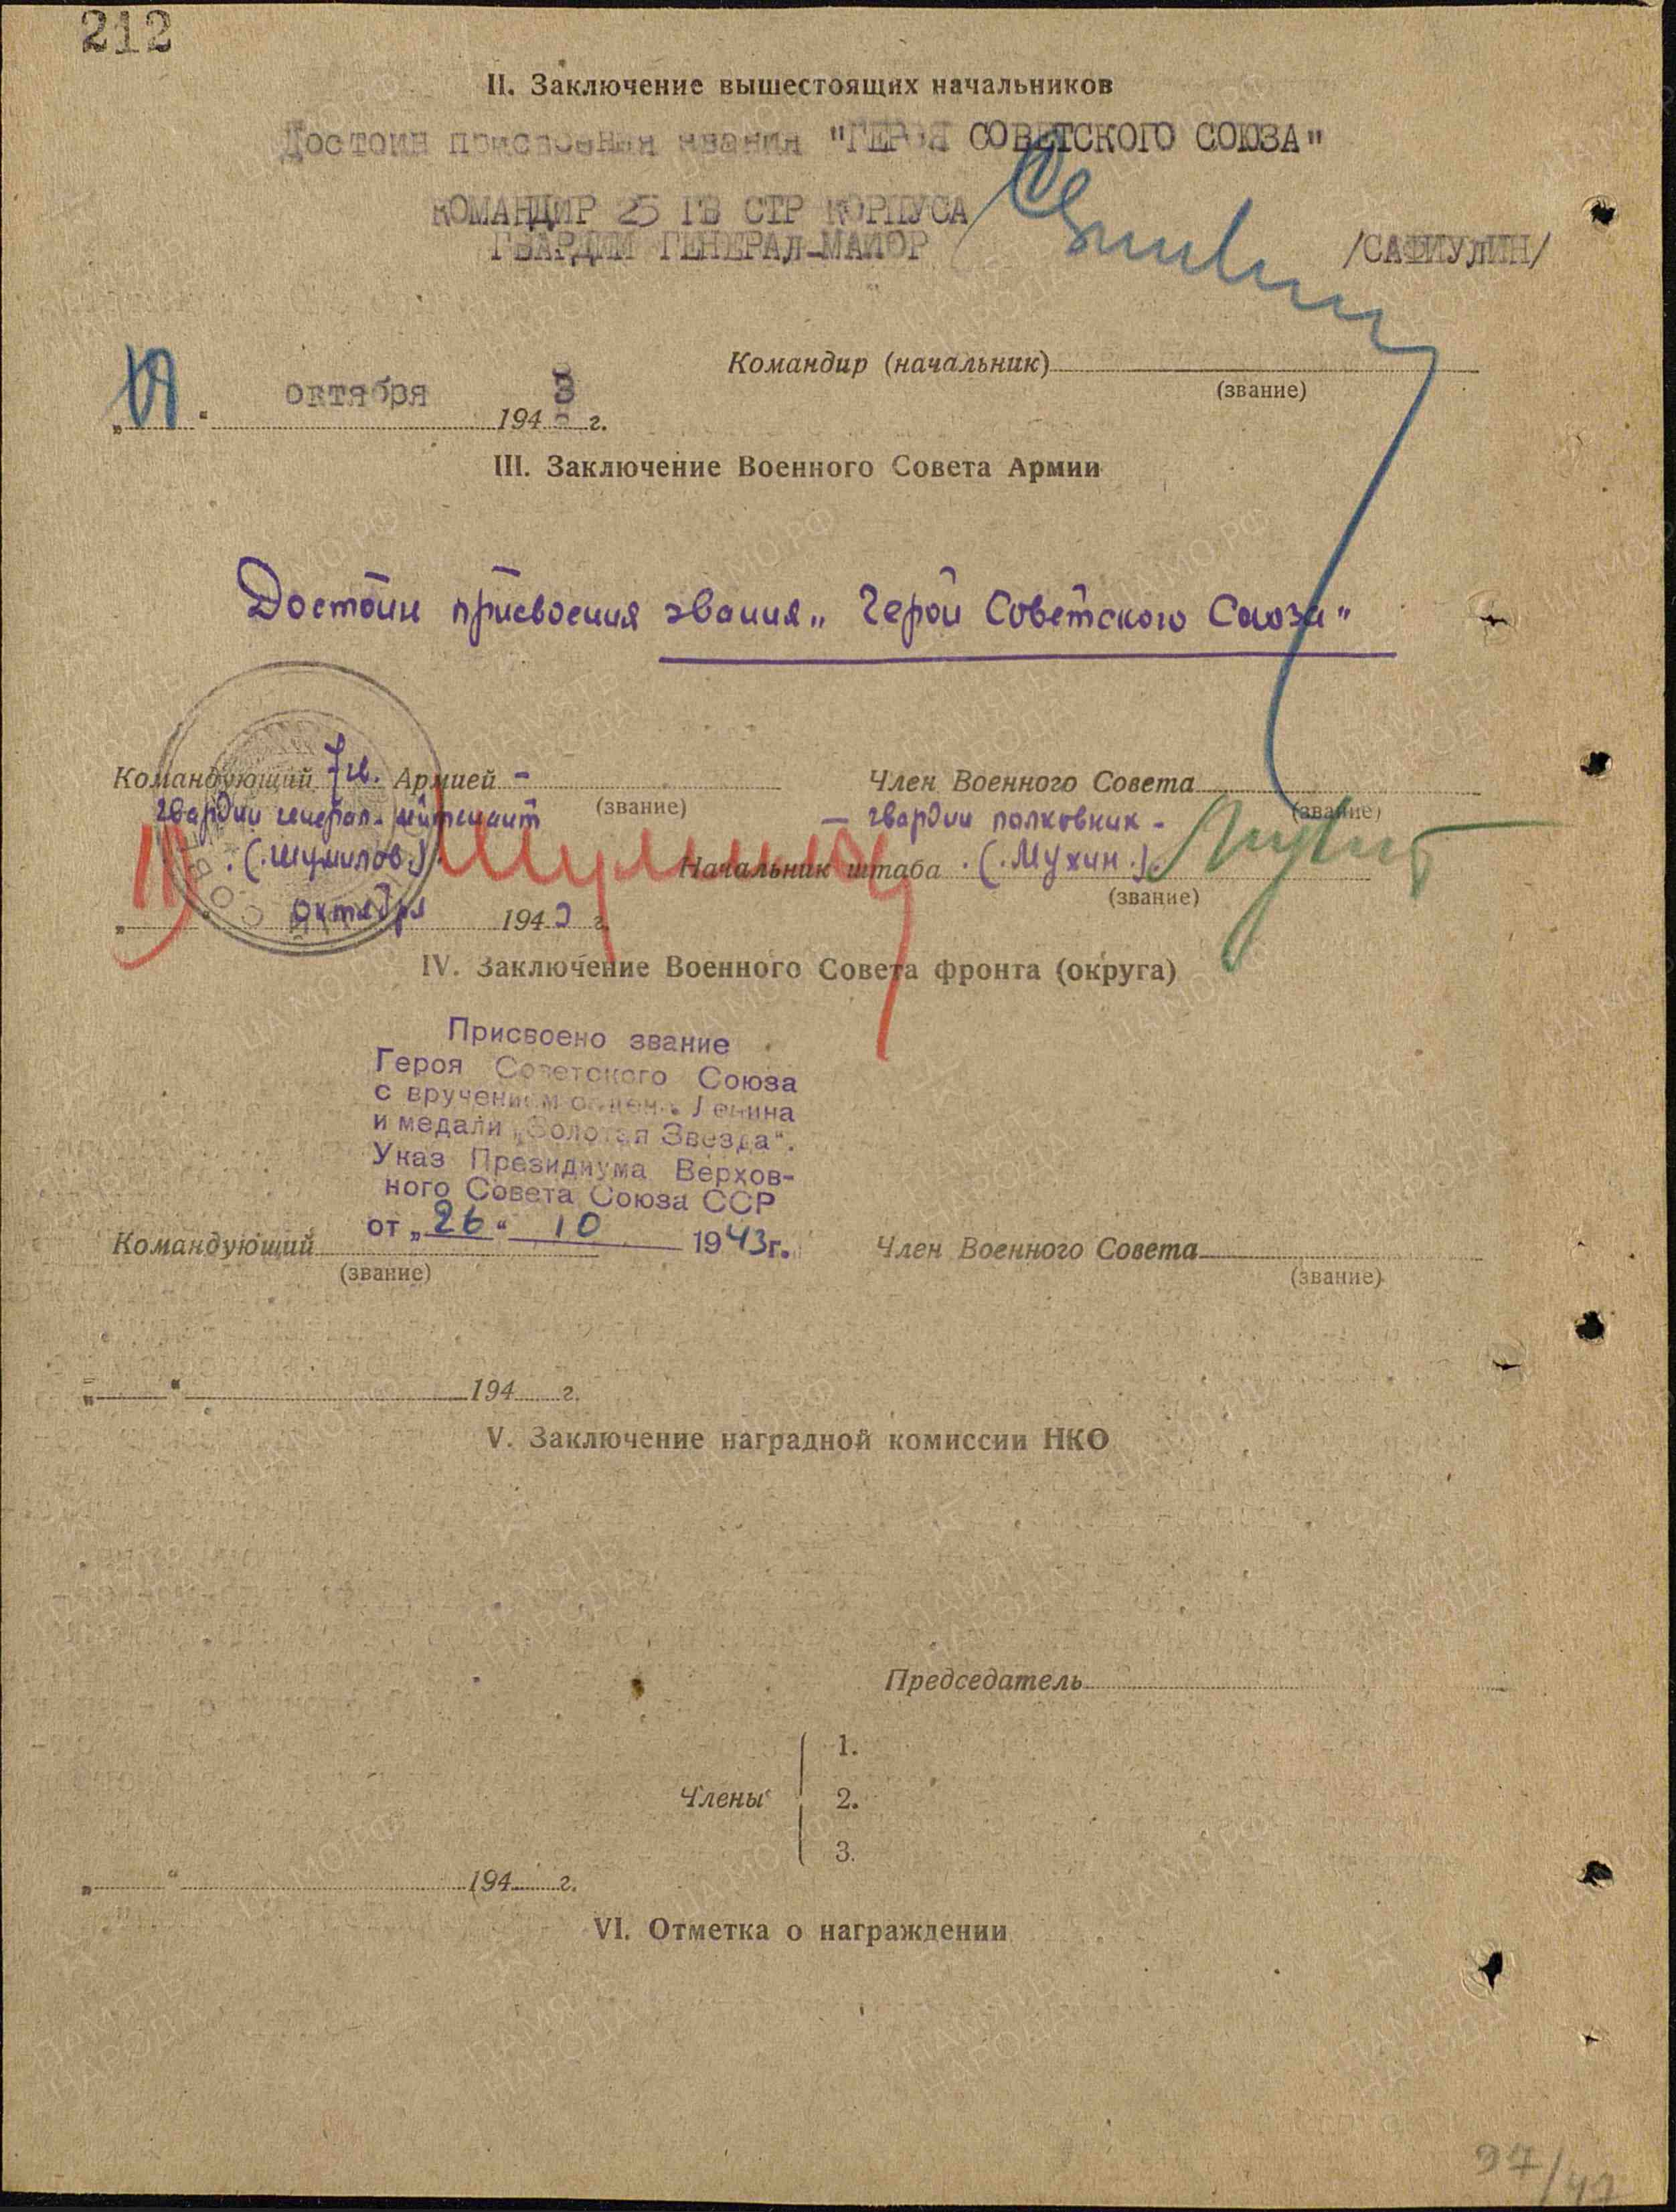 212
II. Заключение вышестоящих начальников
Достоин присвоения звания "ГЕРОЯ СОВЕТСКОГО СОЮЗА"
КОМАНДИР 25 ГВ СТР КОРПУСА
ГВАРДИИ ГЕНЕРАЛ-МАЙОР /САФИУЛИН/
Командир (начальник)
(звание)
„ “ октября 1943 г.
III. Заключение Военного Совета Армии
Достоин присвоения звания „Герой Советского Союза"
Командующий 7 гв. Армией -
(звание)
Член Военного Совета
(звание)
гвардии генерал-лейтенант
- гвардии полковник -
(.Шумилов.) Шумилов
Начальник штаба (.Мухин.)
(звание)
„ “ октября 1943 г.
IV. Заключение Военного Совета фронта (округа)
Присвоено звание
Героя Советского Союза
с вручением ордена Ленина
и медали „Золотая Звезда“.
Указ Президиума Верхов-
ного Совета Союза ССР
от „26“ 10 1943г.
Командующий
(звание)
Член Военного Совета
(звание)
„ “ 194 г.
V. Заключение наградной комиссии НКО
Председатель
Члены
1.
2.
3.
„ “ 194 г.
VI. Отметка о награждении
ЦАМО.РФ
ПАМЯТЬ
НАРОДА